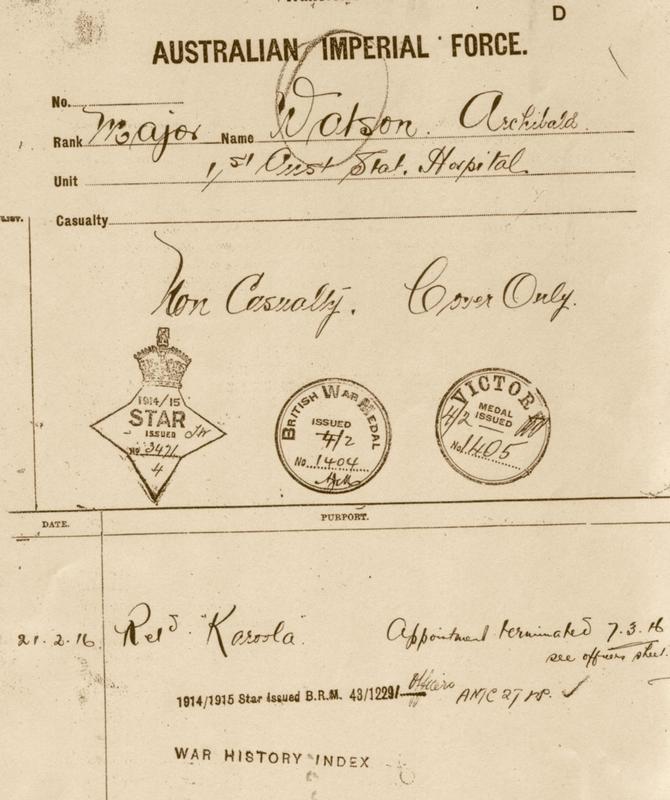 D
AUSTRALIAN IMPERIAL FORCE.
No.
Rank Major Name Watson. Archibald.
Unit 1st Aust Stat. Hospital
Casualty
Non Casualty. Cover Only.
1914/15
STAR
ISSUED
No 3421
4
BRITISH WAR MEDAL
ISSUED
4/2
No. 1404
VICTOR
MEDAL
ISSUED
4/2
No. 1405
DATE. PURPORT.
21.2.16 Retd "Karoola" Appointment terminated 7.3.16
see officers sheet.
1914/1915 Star Issued B.R.M. 43/1229/ Officers
WAR HISTORY INDEX